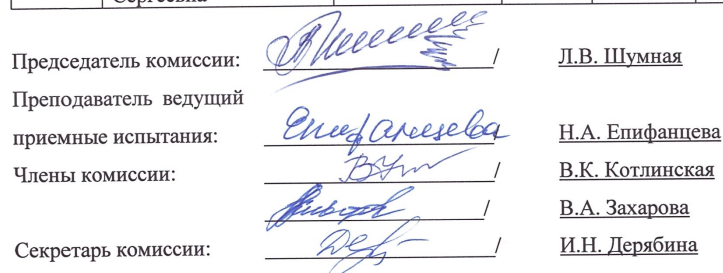 Сергеевна
Председатель комиссии: / Л.В. Шумная
Преподаватель ведущий
приемные испытания: Епифанцева Н.А. Епифанцева
Члены комиссии: / В.К. Котлинская
/ В.А. Захарова
Секретарь комиссии: / И.Н. Дерябина